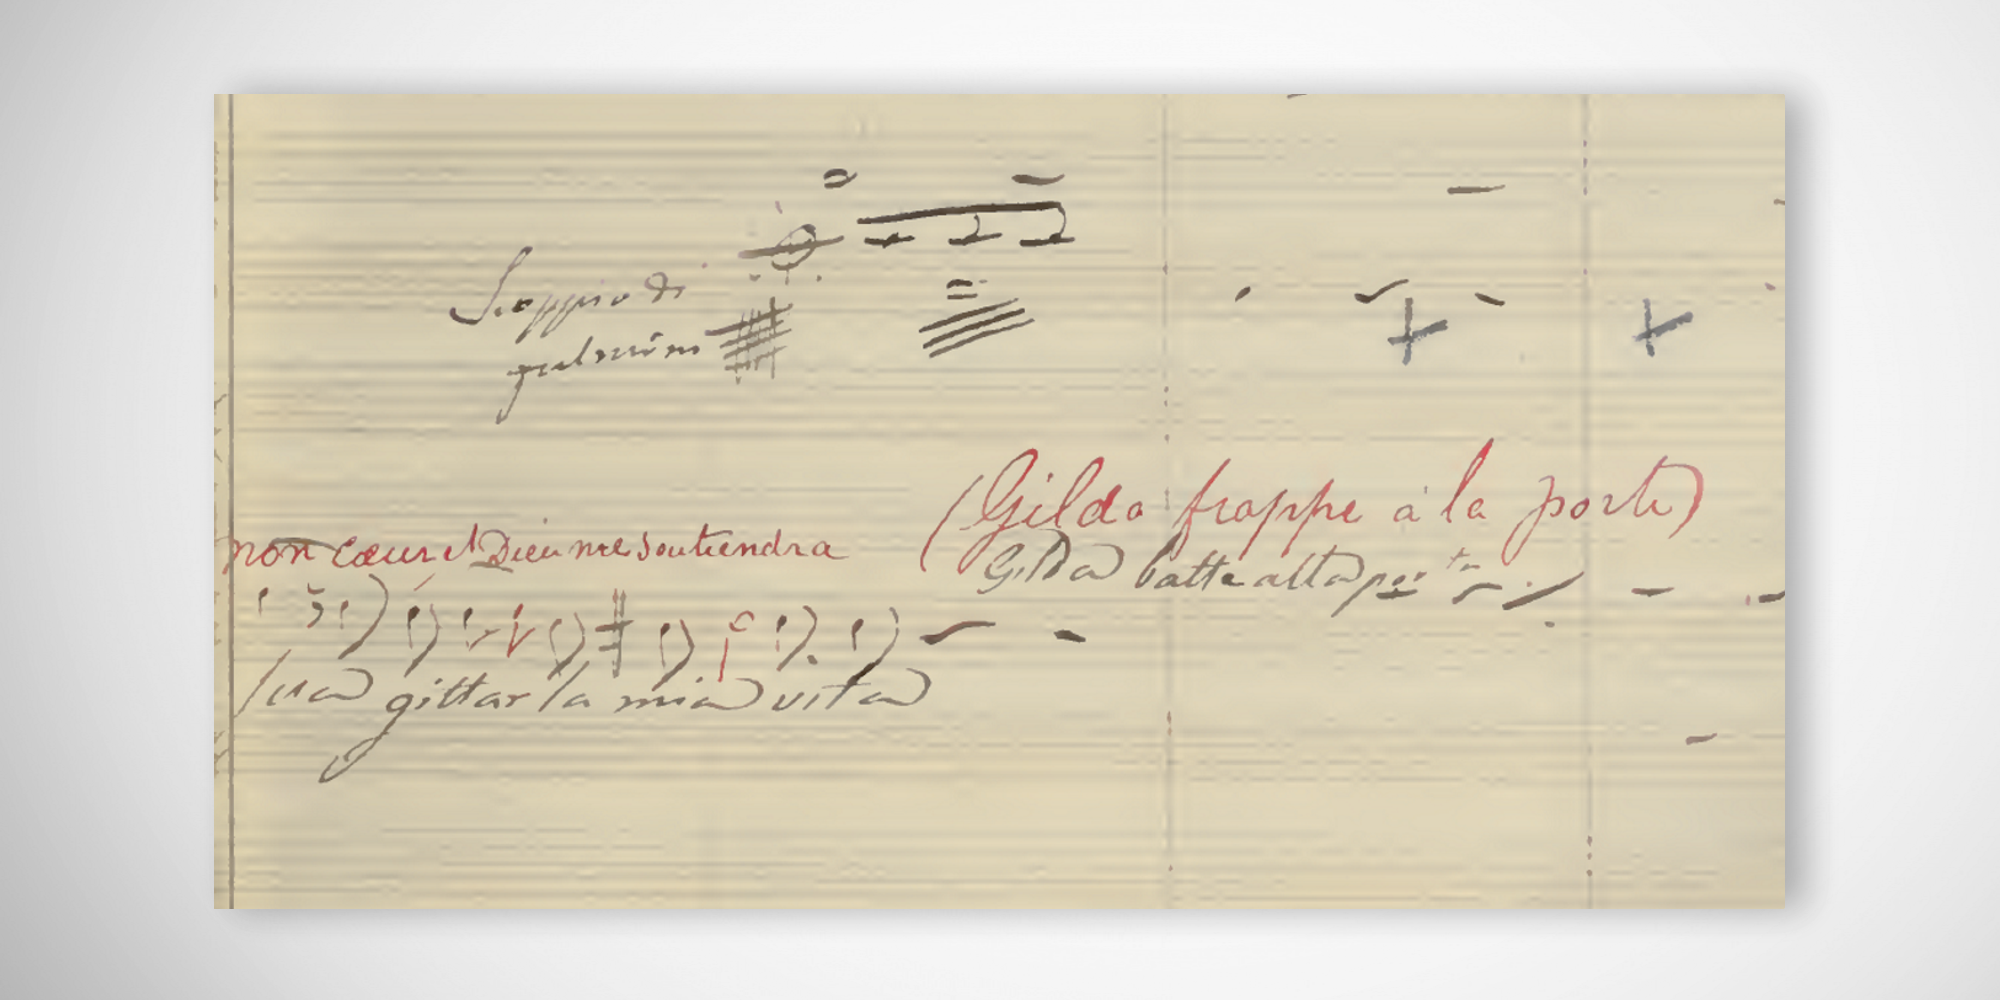 Scoppio di
fulmine
(Gilda frappe à la porte)
mon cœur et Dieu me soutiendra
Gilda batte alla porta
sua gittar la mia vita